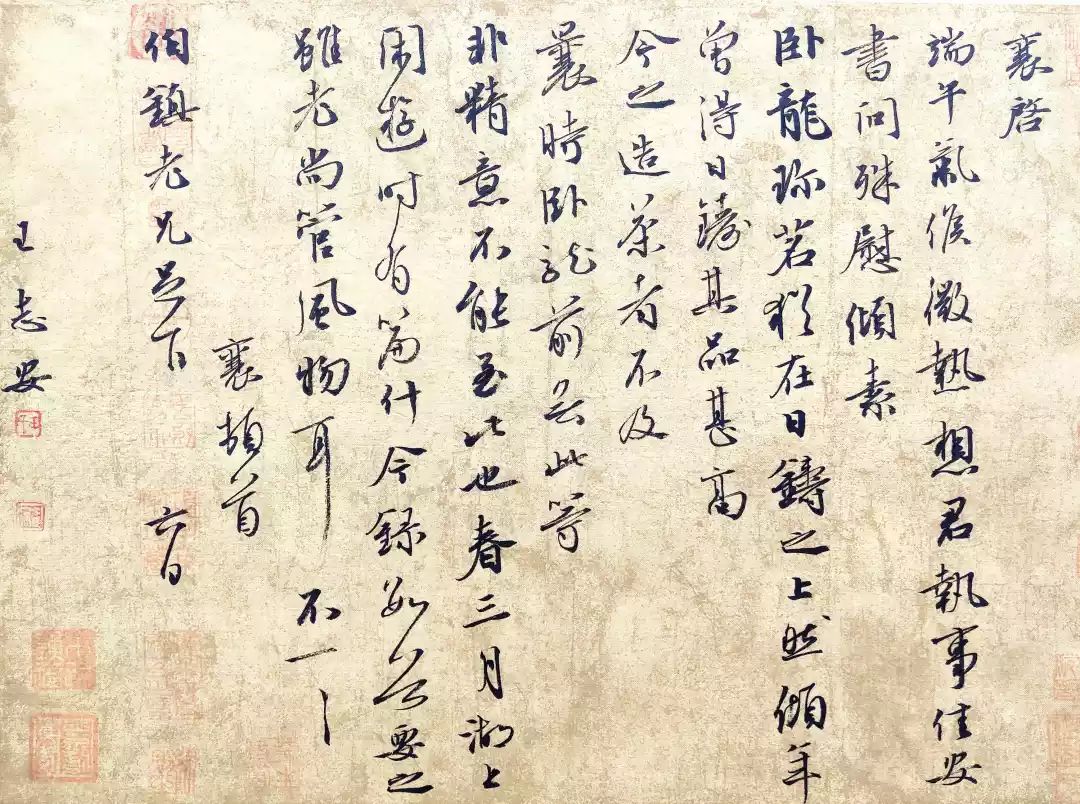 襄啓
端午氣候微熱想君執事佳安
書問殊慰傾素
卧龍珎茗猶在日鑄之上然傾年
曾得日鑄其品甚高
今之造茶者不及
曩時卧龍前無此等
非精意不能至此也春三月湖上
閑遊時有篇什今録要之
雖老尚管風物耳 不一一
襄頓首
伯鎮老兄足下 六日
王志安